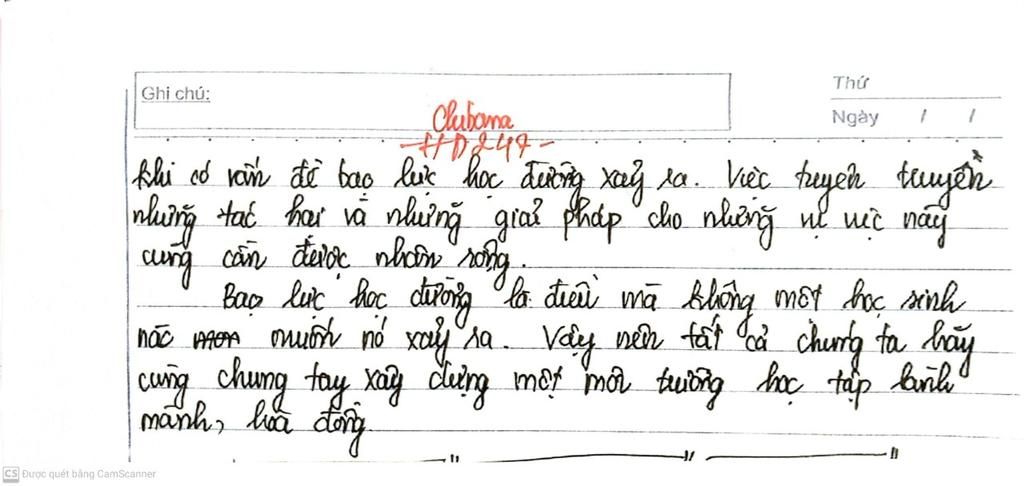 Ghi chú:
Thứ
Ngày / /
Clubama
HD247
khi có vấn đề bạo lực học đường xảy ra. Việc tuyên truyền
những tác hại và những giải pháp cho những vụ việc này
cũng cần được nhân rộng.
Bạo lực học đường là điều mà không một học sinh
nào muốn nó xảy ra. Vậy nên tất cả chúng ta hãy
cùng chung tay xây dựng một môi trường học tập lành
mạnh, hoà đồng
CS Được quét bằng CamScanner